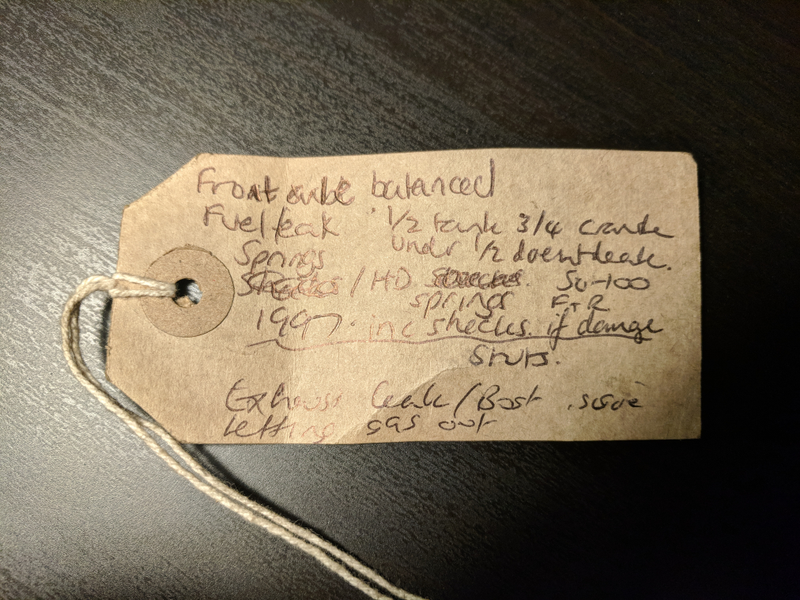 Front balanced
Fuel leak 1/2 tank 3/4
under 1/2 doesnt leak.
Springs
/ HD 50-100
springs F+R
1997. inc shocks. if damge
struts.
Exhaus leak / Bost
letting gas out